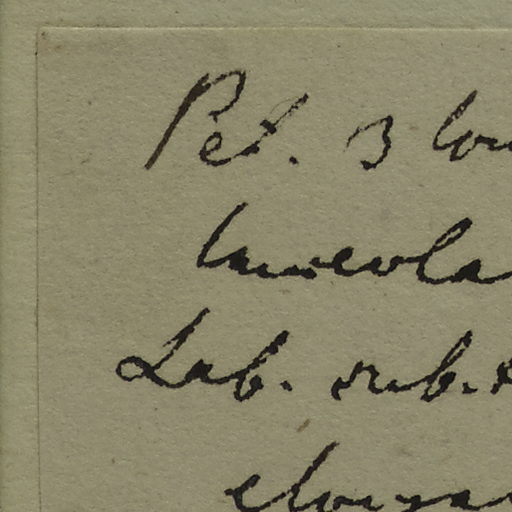 Pet. 3 lon
lanceola
Lab. sub.
elonga